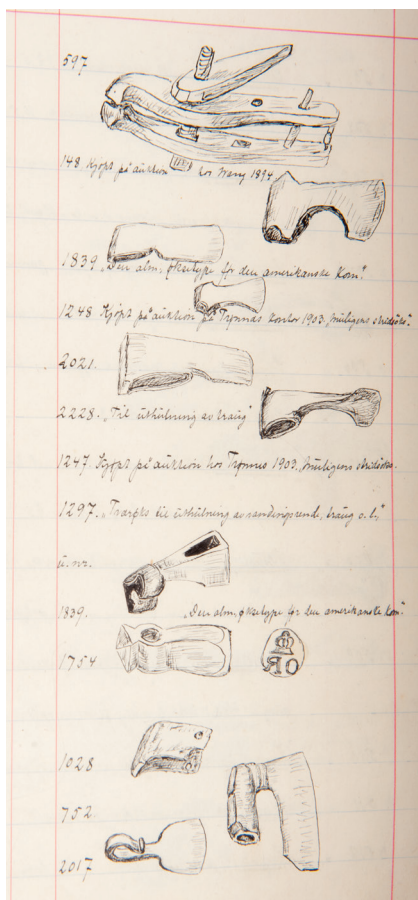 597
148 Kjøpt på auktion hos Wang 1894.
1839 „Den alm. økse­type før den amerikanske kom."
1248 Kjøpt på auktion på Trønnæs kontor 1903, „muligens stridsøks".
2021.
2228. „Til uthulning av traug"
1247. Kjøpt på auktion hos Trønnes 1903. „Muligens stridsøks.
1297. „Tværøks til uthulning av vandingsrende, traug o.l."
u.nr.
1839. „Den alm. øksetype før den amerikanske kom."
1754
OR
1028
752
2017